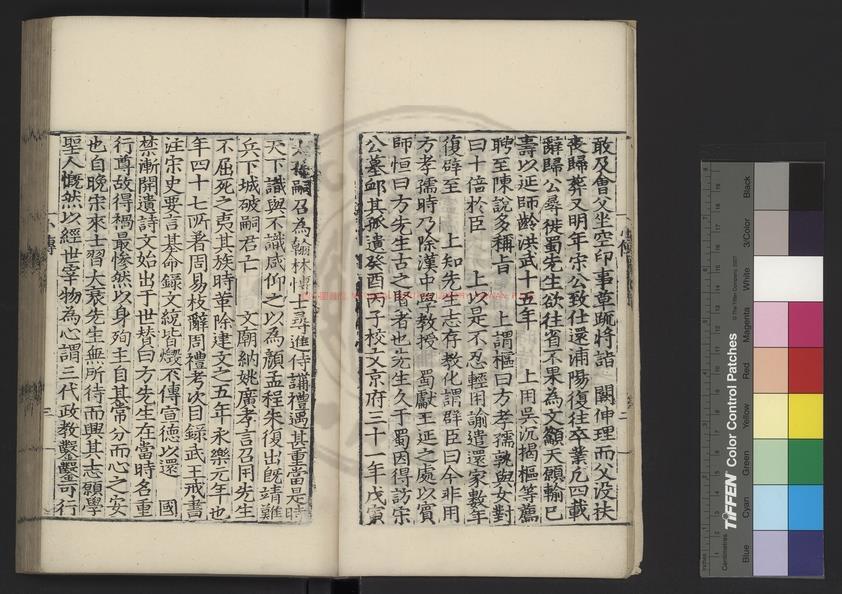 敢及會父坐空印事草疏將詣 闕伸理而父没扶
喪歸葬又明年宋公致仕還浦陽復往卒業凡四載
辭歸公尋徙蜀先生欲往省不果為文籲天願輸已
壽以延師齡洪武十五年 上用吳沉揭樞等薦
聘至陳說多稱旨 上謂樞曰方孝孺孰與女對
曰十倍於臣 上以是不忍輕用諭遣還家數年
復辟至 上知先生志存教化謂群臣曰今非用
方孝孺時乃除漢中學教授 蜀獻王延之處以賓
師恒曰方先生古之賢者也先生久于蜀因得訪宋
公墓卹其孤遺癸酉丙子校文京府三十一年戊寅
太孫嗣召為翰林博士尋進侍講禮遇甚重當是時
天下識與不識咸仰之以為顏孟程朱復出既靖難
兵下城破嗣君亡 文廟納姚廣孝言召用先生
不屈死之夷其族時革除建文之五年永樂元年也
年四十七所者周易枝辭周禮考次目録武王戒書
注宋史要言基命録文統皆燬不傳宣德以還 國
禁漸開遺詩文始出于世贊曰方先生在當時名重
行尊故得禍最慘然以身殉主自其常分而心之安
也自晚宋來士習大衰先生無所待而興其志願學
聖人慨然以經世宰物為心謂三代政教鑿鑿可行
小傳
二
小傳
三
TIFFEN Color Control Patches
© The Tiffen Company, 2007
Centimetres
Inches
Blue
Cyan
Green
Yellow
Red
Magenta
White
3/Color
Black